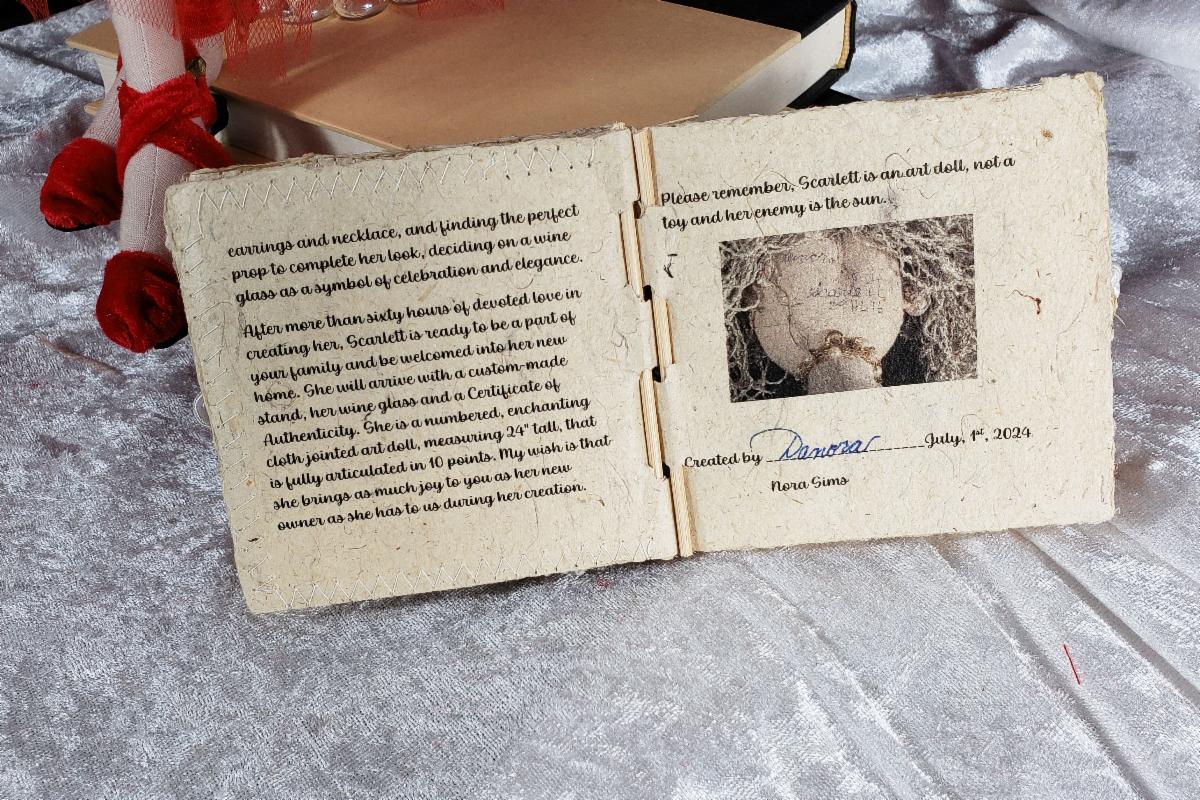 earrings and necklace, and finding the perfect
prop to complete her look, deciding on a wine
glass as a symbol of celebration and elegance.
After more than sixty hours of devoted love in
creating her, Scarlett is ready to be a part of
your family and be welcomed into her new
home. She will arrive with a custom-made
stand, her wine glass and a Certificate of
Authenticity. She is a numbered, enchanting
cloth jointed art doll, measuring 24" tall, that
is fully articulated in 10 points. My wish is that
she brings as much joy to you as her new
owner as she has to us during her creation.
Please remember, Scarlett is an art doll, not a
toy and her enemy is the sun.
Created by Danora July, 1st, 2024
Nora Sims